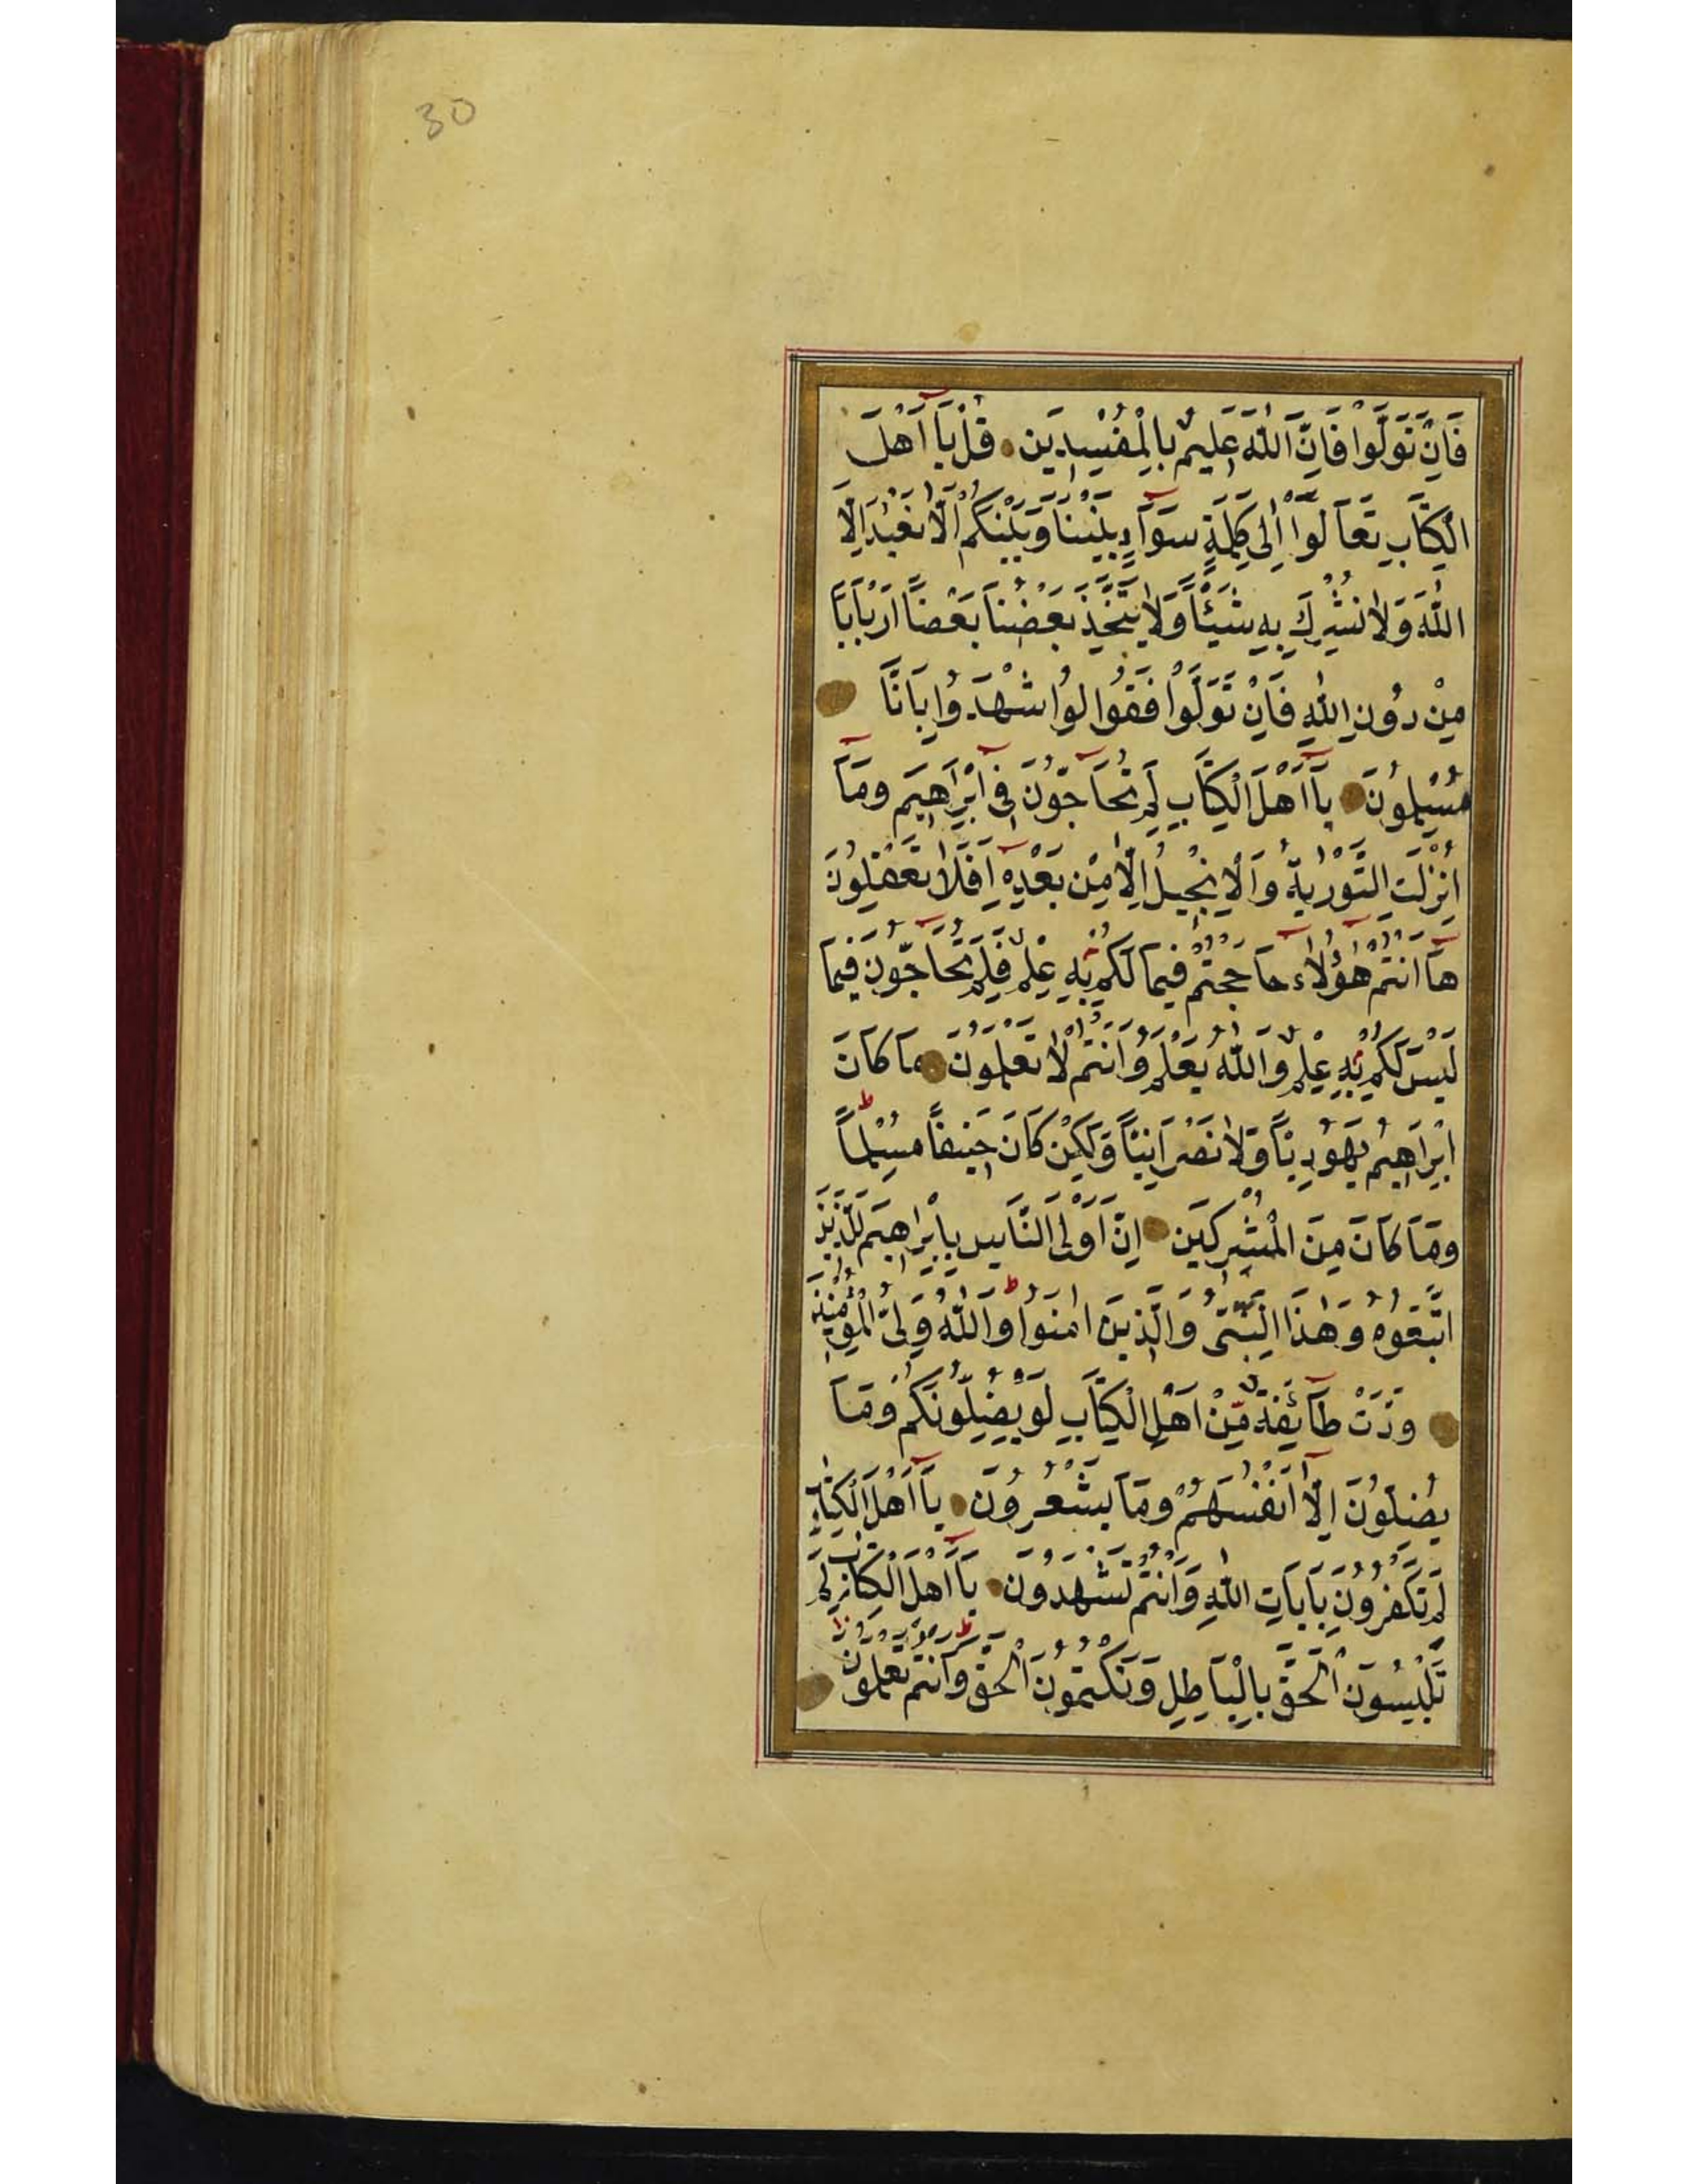 30
فَاِنْ تَوَلَّوْا فَاِنَّ اللّٰهَ عَلِيمٌ بِالْمُفْسِدِينَ قُلْ يَٓا اَهْلَ
الْكِتَابِ تَعَالَوْا اِلٰى كَلِمَةٍ سَوَٓاءٍ بَيْنَنَا وَبَيْنَكُمْ اَلَّا نَعْبُدَ اِلَّا
اللّٰهَ وَلَا نُشْرِكَ بِهِ شَيْئًا وَلَا يَتَّخِذَ بَعْضُنَا بَعْضًا اَرْبَابًا
مِنْ دُونِ اللّٰهِ فَاِنْ تَوَلَّوْا فَقُولُوا اشْهَدُوا بِاَنَّا
مُسْلِمُونَ يَٓا اَهْلَ الْكِتَابِ لِمَ تُحَٓاجُّونَ فِٓى اِبْرَاهِيمَ وَمَٓا
اُنْزِلَتِ التَّوْرٰيةُ وَالْاِنْجِيلُ اِلَّا مِنْ بَعْدِهِٓ اَفَلَا تَعْقِلُونَ
هَٓا اَنْتُمْ هٰٓؤُلَٓاءِ حَاجَجْتُمْ فِيمَا لَكُمْ بِهِ عِلْمٌ فَلِمَ تُحَٓاجُّونَ فِيمَا
لَيْسَ لَكُمْ بِهِ عِلْمٌ وَاللّٰهُ يَعْلَمُ وَاَنْتُمْ لَا تَعْلَمُونَ مَا كَانَ
اِبْرَاهِيمُ يَهُودِيًّا وَلَا نَصْرَانِيًّا وَلٰكِنْ كَانَ حَنِيفًا مُسْلِمًا ط
وَمَا كَانَ مِنَ الْمُشْرِكِينَ اِنَّ اَوْلَى النَّاسِ بِاِبْرَاهِيمَ لَلَّذِينَ
اتَّبَعُوهُ وَهٰذَا النَّبِىُّ وَالَّذِينَ اٰمَنُوا ط وَاللّٰهُ وَلِىُّ الْمُؤْمِنِينَ
وَدَّتْ طَٓائِفَةٌ مِنْ اَهْلِ الْكِتَابِ لَوْ يُضِلُّونَكُمْ وَمَا
يُضِلُّونَ اِلَّٓا اَنْفُسَهُمْ وَمَا يَشْعُرُونَ يَٓا اَهْلَ الْكِتَابِ
لِمَ تَكْفُرُونَ بِاٰيَاتِ اللّٰهِ وَاَنْتُمْ تَشْهَدُونَ يَٓا اَهْلَ الْكِتَابِ لِمَ
تَلْبِسُونَ الْحَقَّ بِالْبَاطِلِ وَتَكْتُمُونَ الْحَقَّ وَاَنْتُمْ تَعْلَمُونَ